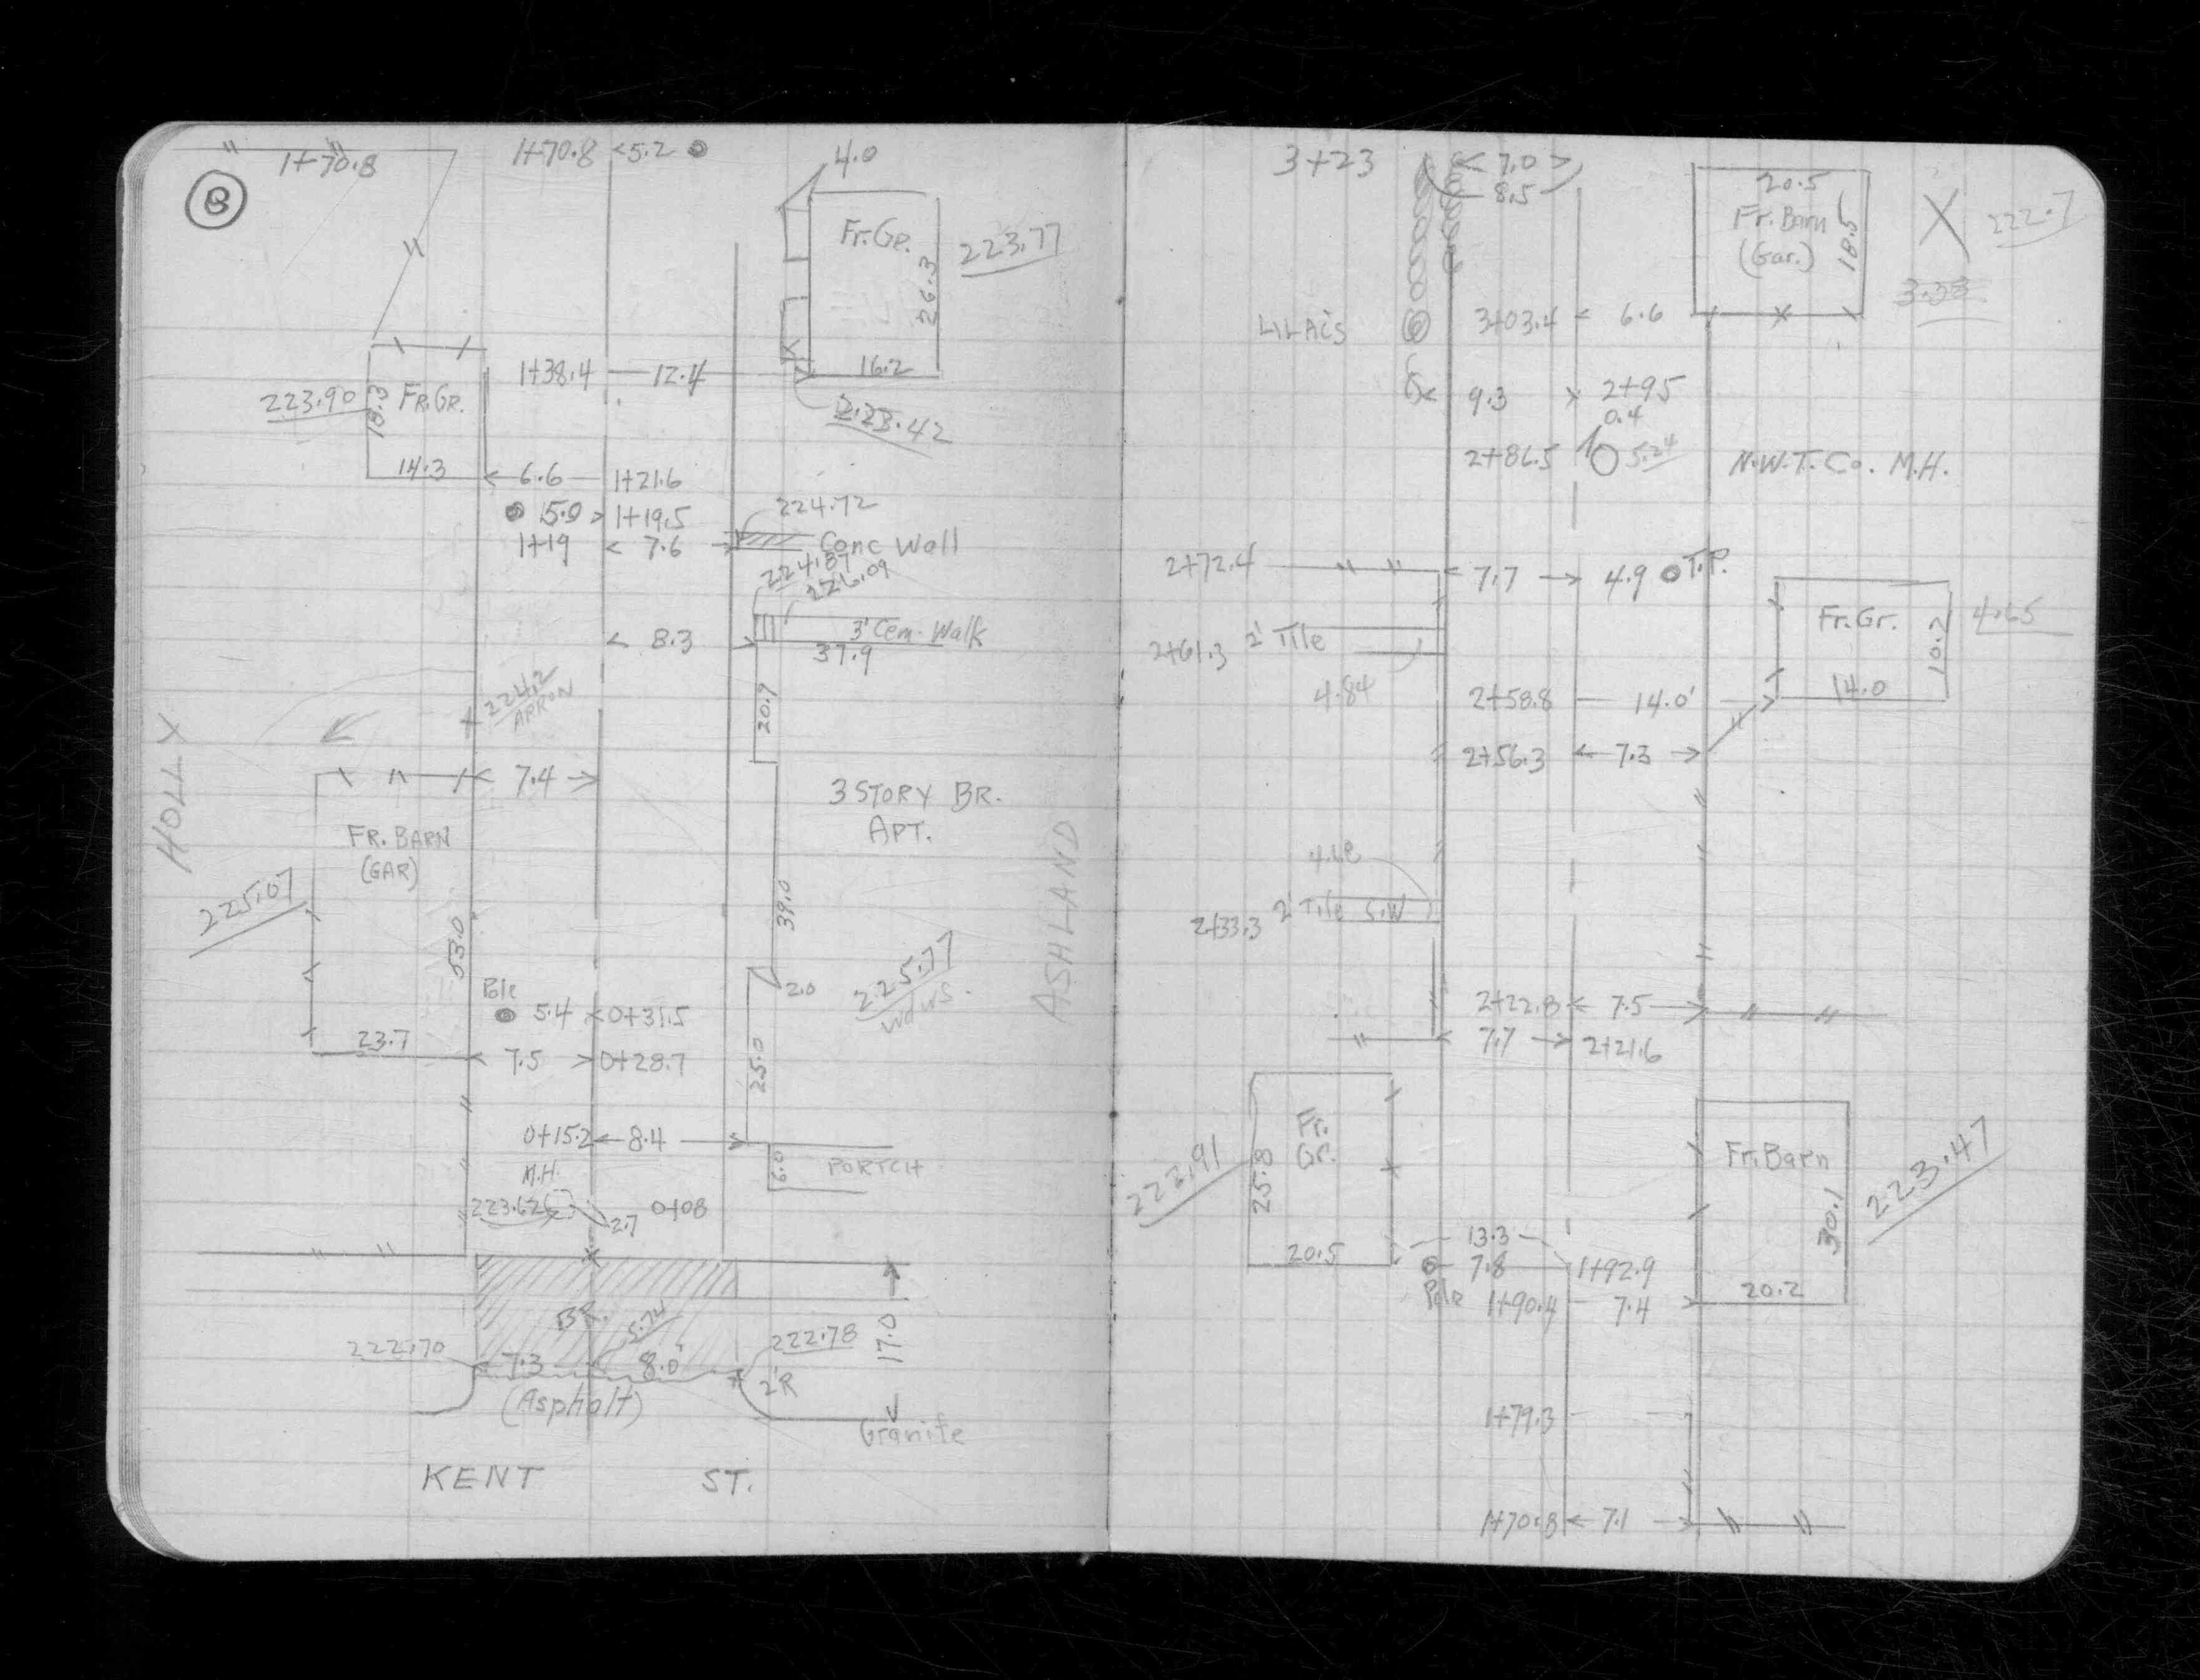 1+70.8
1+70.8 <5.2
4.0
8
Fr.Gr.
26.3
223.77
16.2
1+38.4 12.4
223.42
223.90
18.3
FR.GR.
14.3
6.6 1+21.6
15.0 > 1+19.5
1+19 < 7.6
224.72
Conc Wall
224.87
226.09
3' Cem. Walk
< 8.3
37.9
20.9
224.2
HOLLY
7.4
3 STORY BR.
APT.
FR. BARN
(GAR)
225.07
53.0
39.0
ASHLAND
2.0
225.77
Wdws.
Pole
5.4 <0+31.5
23.7
7.5 >0+28.7
25.0
0+15.2 8.4
6.0
PORTCH
M.H.
223.62
2.7
0+08
BR.
5.74
17.0
222.70
7.3
8.0'
222.78
2'R
(Asphalt)
Granite
KENT ST.
3+23
< 7.0 >
8.5
20.5
Fr. Barn
(Gar.)
18.5
X
222.7
3.38
LILACS
3+03.4 < 6.6
9.3
2+95
0.4
2+86.5
5.24
N.W.T.Co. M.H.
2+72.4
7.7
4.9
T.P.
Fr.Gr.
10.2
14.0
4.65
2+61.3
2' Tile
4.84
2+58.8 14.0'
2+56.3 7.3
2+33.3
2' Tile S.W
2+22.8 7.5
7.7 2+21.6
Fr.
Gr.
25.8
20.5
Fr. Barn
30.1
20.2
223.47
13.3
7.8 1+92.9
Pole
1+90.4 7.4
1+79.3
1+70.8 7.1